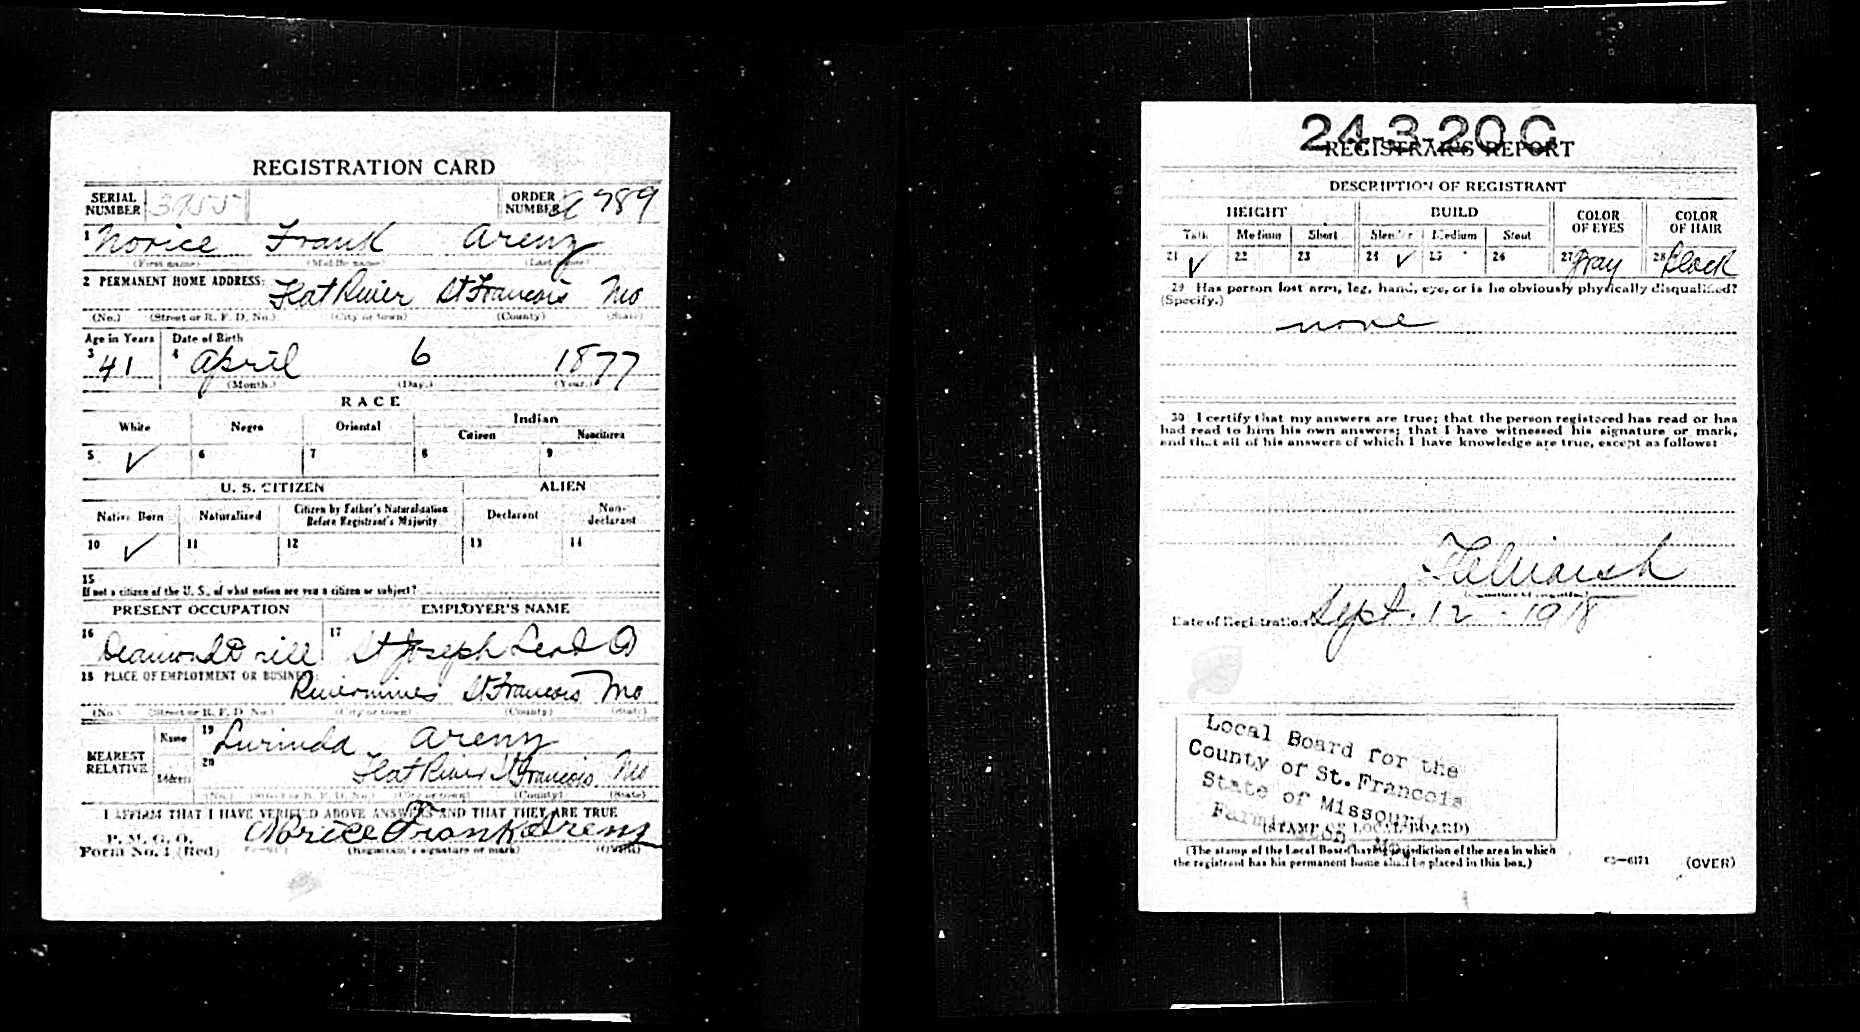 REGISTRATION CARD
SERIAL NUMBER 3955 ORDER NUMBER A789
1 Norice Frank Arenz
(First name) (Middle name) (Last name)
2 PERMANENT HOME ADDRESS: Flat River St Francois Mo
(No.) (Street or R. F. D. No.) (City or town) (County) (State)
Age in Years Date of Birth
3 41 4 April 6 1877
(Month.) (Day.) (Year.)
RACE
White Negro Oriental Indian
Citizen Noncitizen
5 ✓ 6 7 8 9
U. S. CITIZEN ALIEN
Native Born Naturalized Citizen by Father's Naturalization Before Registrant's Majority Declarant Non-declarant
10 ✓ 11 12 13 14
15
If not a citizen of the U. S., of what nation are you a citizen or subject?
PRESENT OCCUPATION EMPLOYER'S NAME
16 Deamond Drill 17 St Joseph Lead Co
18 PLACE OF EMPLOYMENT OR BUSINESS: Rivermines St Francois Mo
(No.) (Street or R. F. D. No.) (City or town) (County) (State)
NEAREST RELATIVE Name 19 Lurinda Arenz
Address 20 Flat River St Francois Mo
(No.) (Street or R. F. D. No.) (City or town) (County) (State)
I AFFIRM THAT I HAVE VERIFIED ABOVE ANSWERS AND THAT THEY ARE TRUE
P. M. G. O.
Form No. 1 (Red) Norice Frank Arenz
(Registrant's signature or mark) (OVER)
24-3-20 C
REGISTRAR'S REPORT
DESCRIPTION OF REGISTRANT
HEIGHT BUILD COLOR OF EYES COLOR OF HAIR
Tall Medium Short Slender Medium Stout
21 ✓ 22 23 24 ✓ 25 26 27 Gray 28 Black
29 Has person lost arm, leg, hand, eye, or is he obviously physically disqualified?
(Specify.)
none
30 I certify that my answers are true; that the person registered has read or has
had read to him his own answers; that I have witnessed his signature or mark,
and that all of his answers of which I have knowledge are true, except as follows:
(Signature of registrar)
Date of Registration Sept. 12 - 1918
Local Board for the
County of St. Francois
State of Missouri
Farmington, Mo.
(STAMP OF LOCAL BOARD)
(The stamp of the Local Board having jurisdiction of the area in which
the registrant has his permanent home shall be placed in this box.)
03—6171 (OVER)